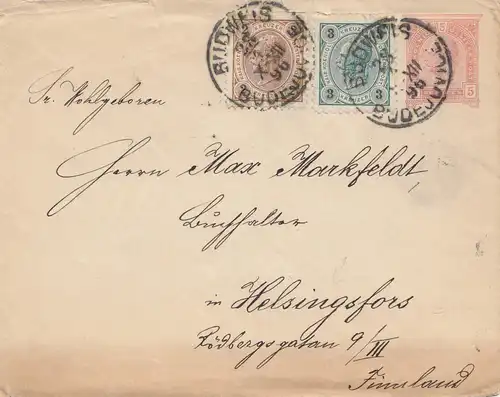 BUDWEIS BUDĚJOVICE
23 XII 96
BUDWEIS BUDĚJOVICE
23 XII 96
3 KREUZER 3
5 5
Sr. Wohlgeboren
Herrn Max Markfeldt
Buchhalter
in Helsingfors
Rödbergsgatan 9/III
Finnland